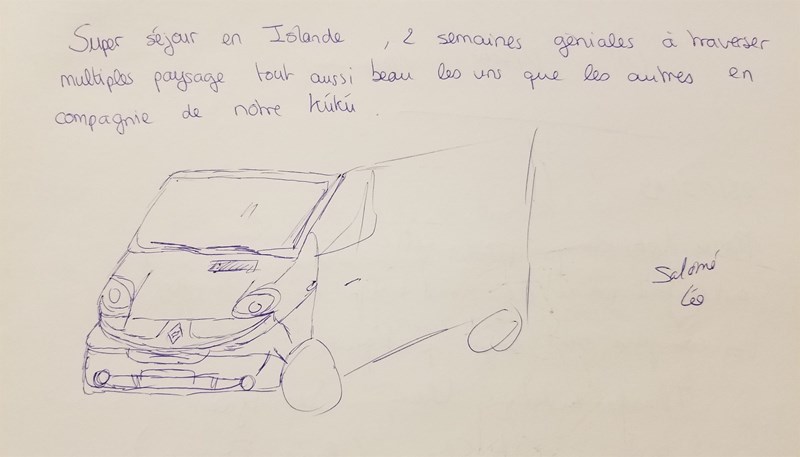 Super séjour en Islande , 2 semaines géniales à traverser
multiples paysage tout aussi beau les uns que les autres en
compagnie de notre Kúkú .
Salomé
Léo